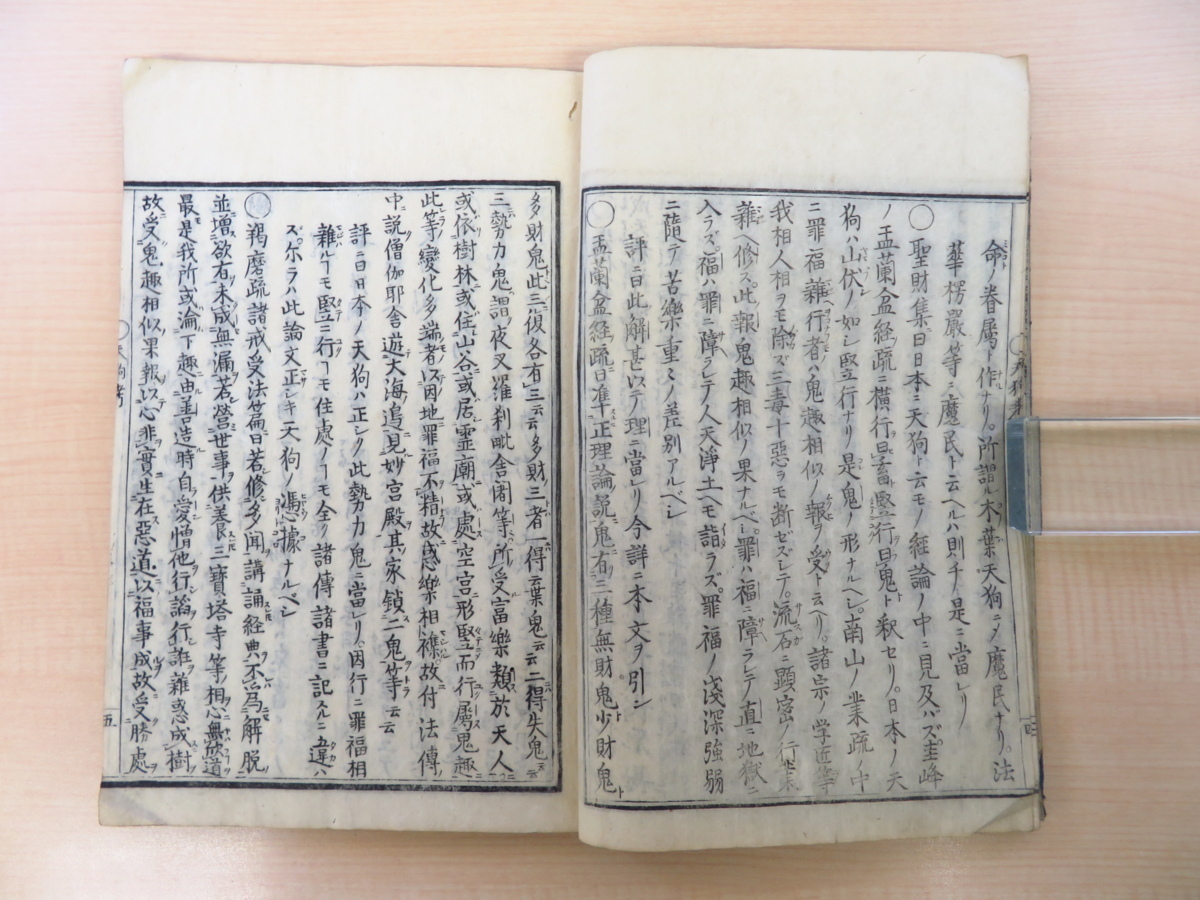 命ノ眷屬ト作ナリ。所謂ル木ノ葉天狗ニメ魔民ナリ。法
華楞嚴等ニ魔民ト云ヘルハ則チ是ニ當レリ
〇聖財集曰日本ニ天狗ト云モノ経論ノ中ニ見及バズ圭峰
ノ盂蘭盆経疏ニ横行曰畜竪行曰鬼ト釈セリ。日本ノ天
狗ハ山伏ノ如シ竪行ナリ是鬼ノ形ナルベシ。南山ノ業疏ノ中
ニ罪福雜ヘ行者ハ鬼趣相似ノ報ヲ受ト云ヘリ。諸宗ノ学匠等
我相人相ヲモ除ズ三毒十惡ヲモ断ゼズシテ。流石ニ顕密ノ行業
雜ヘ修ス。此報鬼趣相似ノ果ナルベシ。罪ハ福ニ障ラレテ直ニ地獄ニ
入ラズ。福ハ罪ニ障ラレテ人天淨土ヘモ詣ラズ。罪福ノ淺深強弱
ニ隨テ苦樂ノ重々ノ差別アルベシ
評ニ曰此解甚以テ理ニ當レリ今詳ニ本文ヲ引ン
〇盂蘭盆経疏曰準正理論説鬼有三種無財鬼少財鬼
四
多財鬼此三復各有三云云多財三者一得棄鬼云云二得失鬼云云
三勢力鬼謂夜叉羅刹毗舎闍等所受富樂類於天人
或依樹林或住山谷或居霊廟或處空宮形竪而行屬鬼趣
此等變化多端者以因地罪福不精故感樂相雜故付法傳
中説僧伽耶舎遊大海邉見妙宮殿其家鎖二鬼等云云
評ニ曰日本ノ天狗ハ正シク此勢力鬼ニ當レリ。因行ニ罪福相
雜ルヿモ竪ニ行クヿモ住處ノヿモ全ク諸傳諸書ニ記スルニ違ハ
ズ尔ラハ此論文正シキ天狗ノ憑據ナルベシ
〇羯磨疏諸戒受法篇曰若修多聞講誦経典不為解脱
並増欲有未成無漏若營世事供養三寶塔寺等相心無欣道
最是我所或淪下趣由善造時自愛憎他行謟行誑雜惑成樹
故受鬼趣相似果報以心非實生在惡道以福事成故受勝處
五